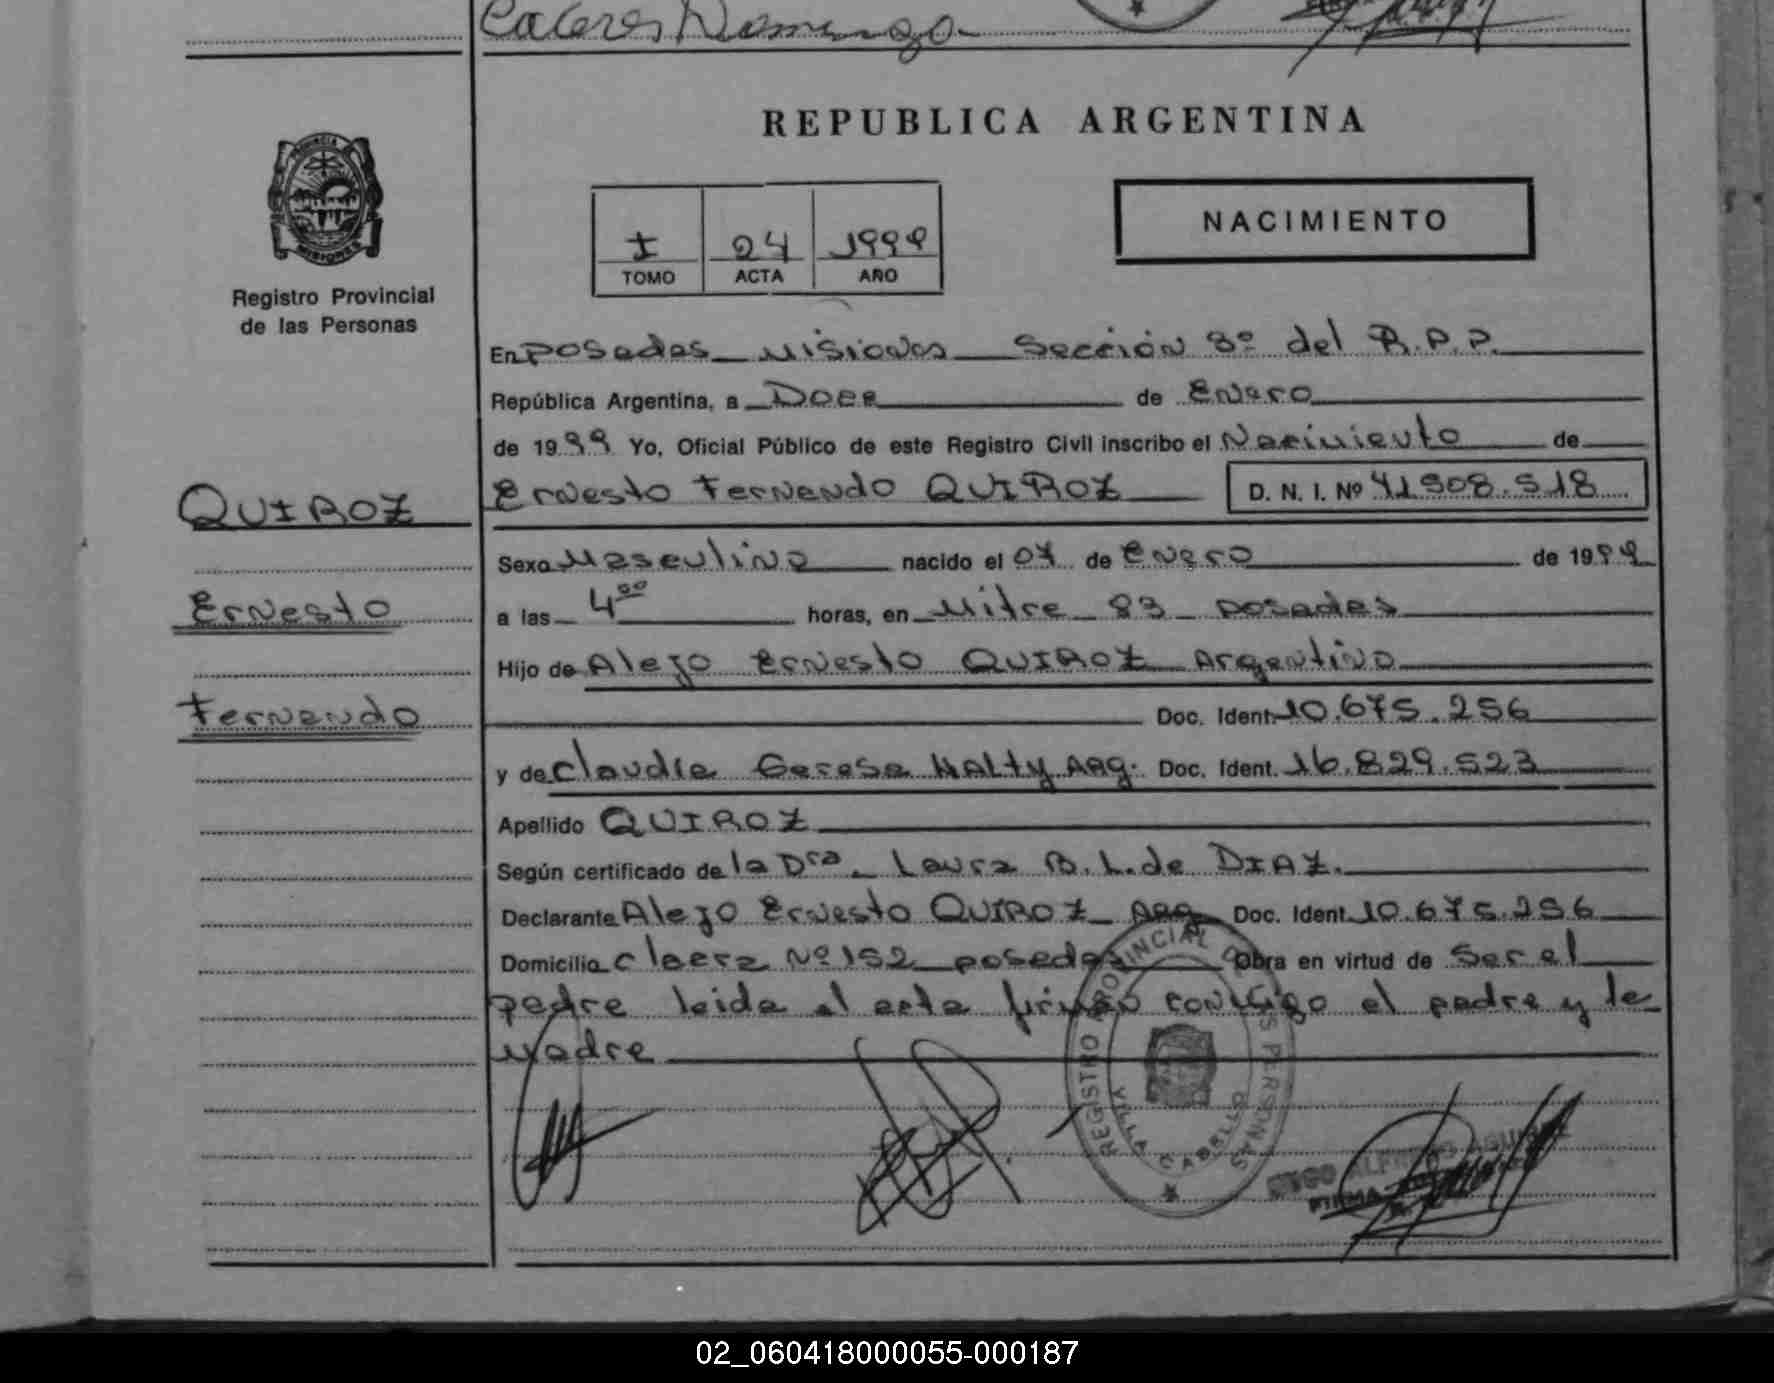 Caceres Domingo
REPUBLICA ARGENTINA
NACIMIENTO
I 24 1999
TOMO ACTA AÑO
Registro Provincial
de las Personas
En Posadas Misiones Sección 8º del R.P.P.
República Argentina, a Doce de Enero
de 1999 Yo, Oficial Público de este Registro Civil inscribo el Nacimiento de
QUIROZ
Ernesto Fernando QUIROZ D. N. I. Nº 41.908.518
Sexo Masculino nacido el 07 de Enero de 1999
Ernesto
a las 4⁰⁰ horas, en Mitre 83 posadas
Hijo de Alejo Ernesto QUIROZ Argentino
Fernando
Doc. Ident. 10.675.256
y de Claudia Teresa HALTY ARG. Doc. Ident. 16.829.523
Apellido QUIROZ
Según certificado de la Dra. Laura B. L. de DIAZ.
Declarante Alejo Ernesto QUIROZ ARG Doc. Ident. 10.675.256
Domicilio Claera Nº 152 posadas Obra en virtud de Ser el
padre leida el acta firman conmigo el padre y la
madre
REGISTRO PROVINCIAL DE LAS PERSONAS
VILLA CABELLO
FIRMA
02_060418000055-000187